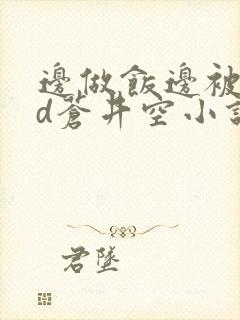 邊做飯邊被
d蒼井空小說
君墜